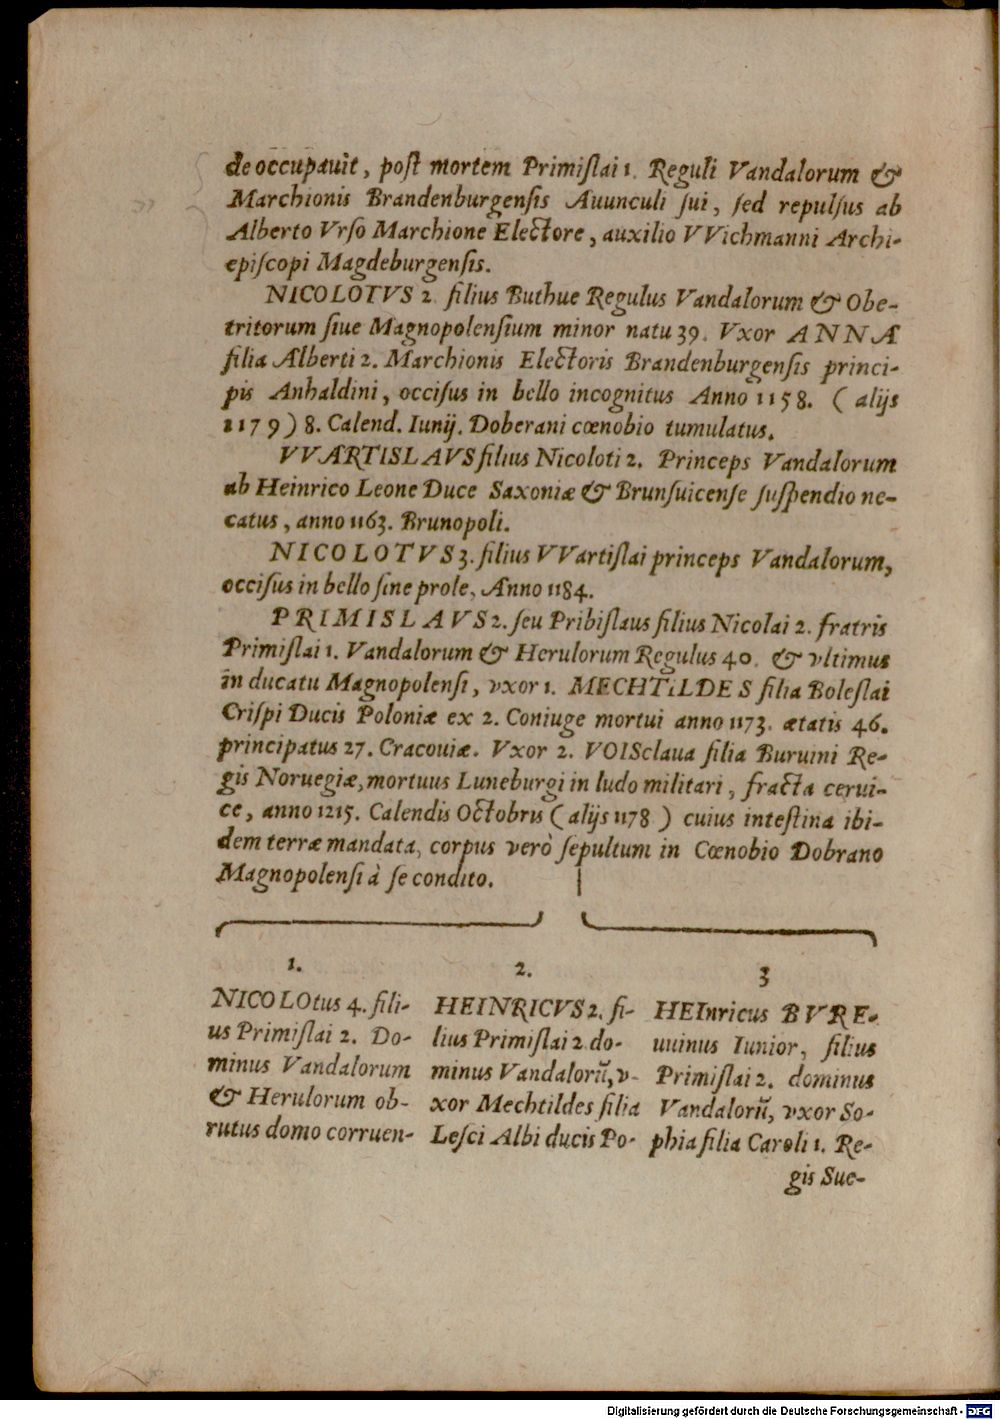 de occupauit, post mortem Primislai 1. Reguli Vandalorum &
Marchionis Brandenburgensis Auunculi sui, sed repulsus ab
Alberto Vrso Marchione Electore, auxilio VVichmanni Archi-
episcopi Magdeburgensis.
NICOLOTVS 2. filius Buthue Regulus Vandalorum & Obe-
tritorum siue Magnopolensium minor natu 39. Vxor ANNA
filia Alberti 2. Marchionis Electoris Brandenburgensis princi-
pis Anhaldini, occisus in bello incognitus Anno 1158. ( alijs
1179) 8. Calend. Iunij. Doberani cœnobio tumulatus.
VVARTISLAVS filius Nicoloti 2. Princeps Vandalorum
ab Heinrico Leone Duce Saxoniæ & Brunsuicense suspendio ne-
catus, anno 1163. Brunopoli.
NICOLOTVS 3. filius VVartislai princeps Vandalorum,
occisus in bello sine prole, Anno 1184.
PRIMISLAVS 2. seu Pribislaus filius Nicolai 2. fratris
Primislai 1. Vandalorum & Herulorum Regulus 40. & vltimus
in ducatu Magnopolensi, vxor 1. MECHTiLDES filia Boleslai
Crispi Ducis Poloniæ ex 2. Coniuge mortui anno 1173. ætatis 46.
principatus 27. Cracouiæ. Vxor 2. VOISclaua filia Buruini Re-
gis Noruegiæ, mortuus Luneburgi in ludo militari, fracta cerui-
ce, anno 1215. Calendis Octobris (alijs 1178) cuius intestina ibi-
dem terræ mandata, corpus verò sepultum in Cœnobio Dobrano
Magnopolensi à se condito.
1.
NICOLOtus 4. fili-
us Primislai 2. Do-
minus Vandalorum
& Herulorum ob-
rutus domo corruen-
2.
HEINRICVS 2. fi-
lius Primislai 2 do-
minus Vandalorũ, v-
xor Mechtildes filia
Lesci Albi ducis Po-
3
HEInricus BVRE-
uuinus Iunior, filius
Primislai 2. dominus
Vandalorũ, vxor So-
phia filia Caroli 1. Re-
gis Sue-
Digitalisierung gefördert durch die Deutsche Forschungsgemeinschaft - DFG